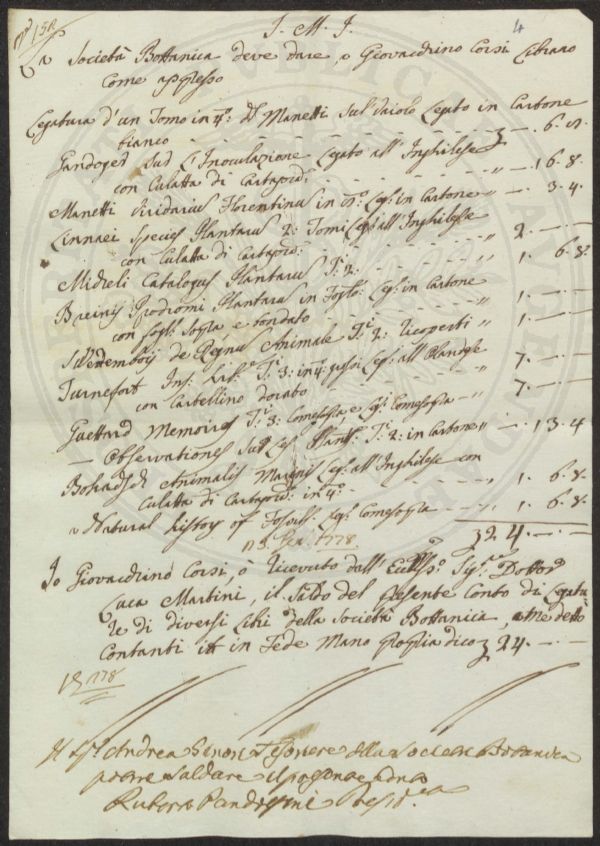 J. M. J. 4
La Società Bottanica deve dare a Giovacchino Corsi Libraro
Come appresso
Legatura d'un Tomo in 4º: del Manetti Sul Vaiolo Legato in Cartone
bianco - - - 3 —. 6.
Gandoger Sud l'Inoculazione Legato all'Inghilese
con Culatta di Cartapec: - - - „ —. 1 6. 8.
Manetti Viridarius Florentinus in 8º: Leg: in Cartone „ —. 3. 4.
Linnaei Species Plantarus 2: Tomi Leg: all'Inghilese
con Culatta di Cartapec: - - - „ 2. —. —
Micheli Catalogus Plantarus T: 2: - - - „ 1. 6. 8.
Breinij Prodromi Plantarus in Foglo: Leg: in Cartone
con fogl: Sopra e fondato - - - „ 1. —. —
de Regnu Animale T: 2: Ricoperti „ 1. —. —
Turnefort Ins: T: 3: in 4º: Leg: all'Olandese
con Cartellino dorato - - - „ 7. —. —
Guettard Memoires T: 3: Comesopra, e Leg: Comesopra — 7. —. —
— Observationes Sull Plant: T: 2: in Cartone „ —. 13. 4
Bohadsch Animalis Marinis Leg: all'Inghilese con
Culatta di Cartapec: in 4º: - - „ 1. 6. 8.
a Natural history of Fossills: Leg: Comesopra - - „ 1. 6. 8.
3 24. —. —
1778
Io Giovacchino Corsi, ò Ricevuto dall' Eccels: Sig:re Dottore
Luca Martini, il Saldo del presente Conto di Legatu
re di diversi Libri della Società Bottanica, a me detto
Contanti in Fede Mano Propria dico 3 24. —. —
1778
Il Sr Andrea Tesoriere della Società Botanica
potrà saldare il
Ruberto Pandolfini Presid.te